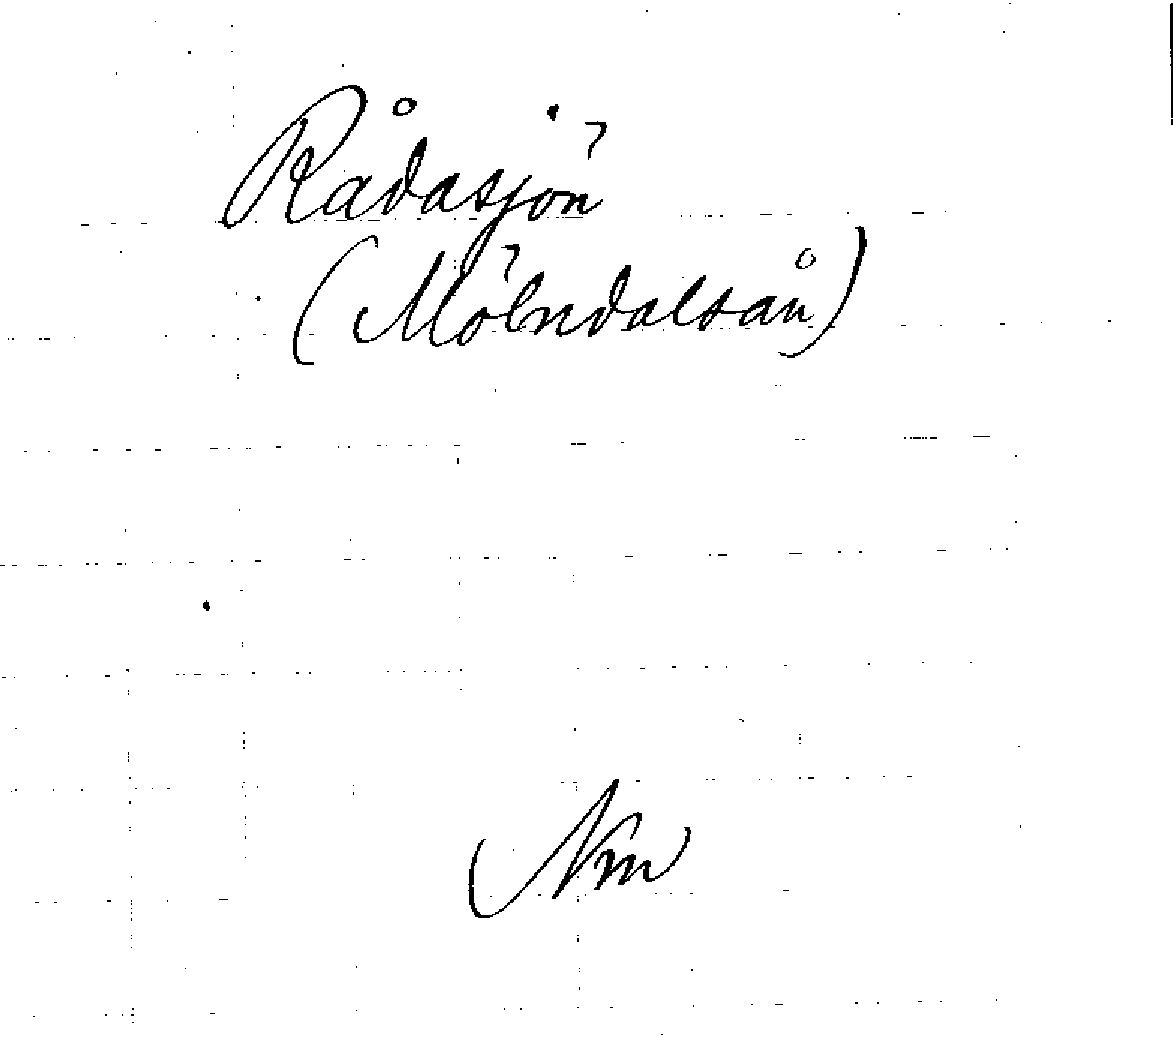 Rådasjön
(Mölndalsån)
Nm